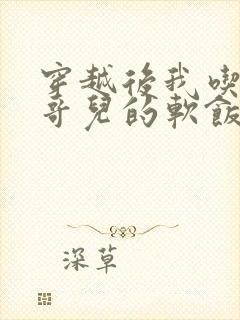 穿越後我喫
哥兒的軟飯
深草